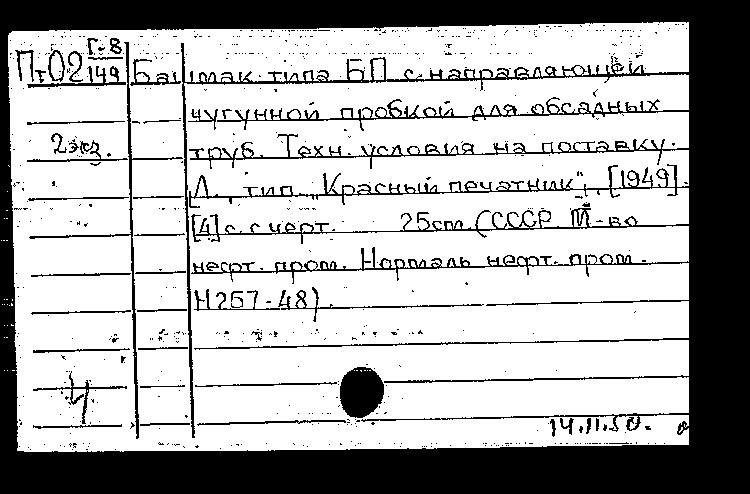 Пт02 Г-8/149 Башмак типа БП с направляющей
чугунной пробкой для обсадных
2 экз. труб. Техн. условия на поставку.
Л., тип. "Красный печатник", [1949].
[4] с. с черт. 25 см. (СССР. М-во
нефт. пром. Нормаль нефт. пром.
Н257-48).
Ч
14.11.50.